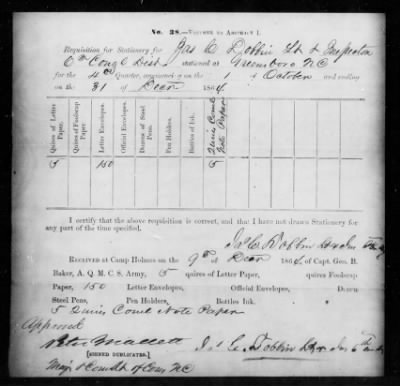 No. 38.—Voucher to Abstract I.
Requisition for Stationery for Jas C Dobbin Lt & Inspector
6th Congl Dist stationed at Greensboro NC
for the 4th Quarter, commencing on the 1 of October and ending
on the 31 of Decr 1864
Quires of Letter Paper.
Quires of Foolscap Paper.
Letter Envelopes.
Official Envelopes.
Dozens of Steel Pens.
Pen Holders.
Bottles of Ink.
Quires Coml Note Paper
5 150 5
I certify that the above requisition is correct, and that I have not drawn Stationery for
any part of the time specified.
Jas C. Dobbin
Received at Camp Holmes on the 9th of Decr 1864 of Capt. Geo. B.
Baker, A. Q. M. C. S. Army, 5 quires of Letter Paper, quires Foolscap
Paper, 150 Letter Envelopes, Official Envelopes, Dozen
Steel Pens, Pen Holders, Bottles Ink.
5 Quires Coml Note Paper
Approved
Peter Mallett
[SIGNED DUPLICATES.]
Jas C. Dobbin
Majr & Comdt of Cons NC